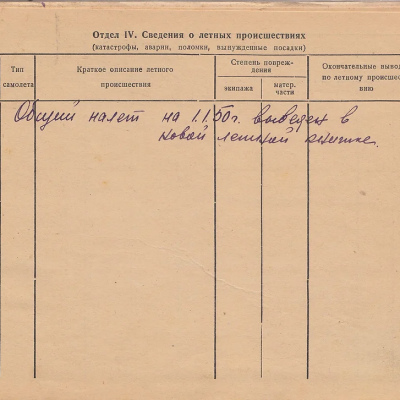 Отдел IV. Сведения о летных происшествиях
(катастрофы, аварии, поломки, вынужденные посадки)
Тип
самолета
Краткое описание летного
происшествия
Степень повреж-
дения
экипажа
матер.
части
Окончательные вывод
по летному происшес
нию
Общий налет на 1.1.50г. выведен в
новой летной книжке.